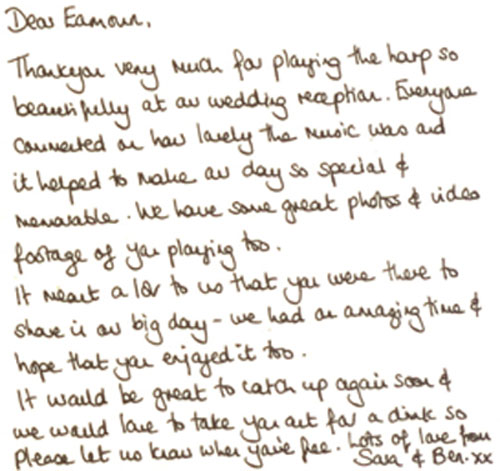 Dear Eamonn,
Thankyou very much for playing the harp so
beautifully at our wedding reception. Everyone
commented on how lovely the music was and
it helped to make our day so special &
memorable. We have some great photos & video
footage of you playing too.
It meant a lot to us that you were there to
share in our big day - we had an amazing time &
hope that you enjoyed it too.
It would be great to catch up again soon &
we would love to take you out for a drink so
please let us know when you're free. Lots of love from
Sara & Ben.xx